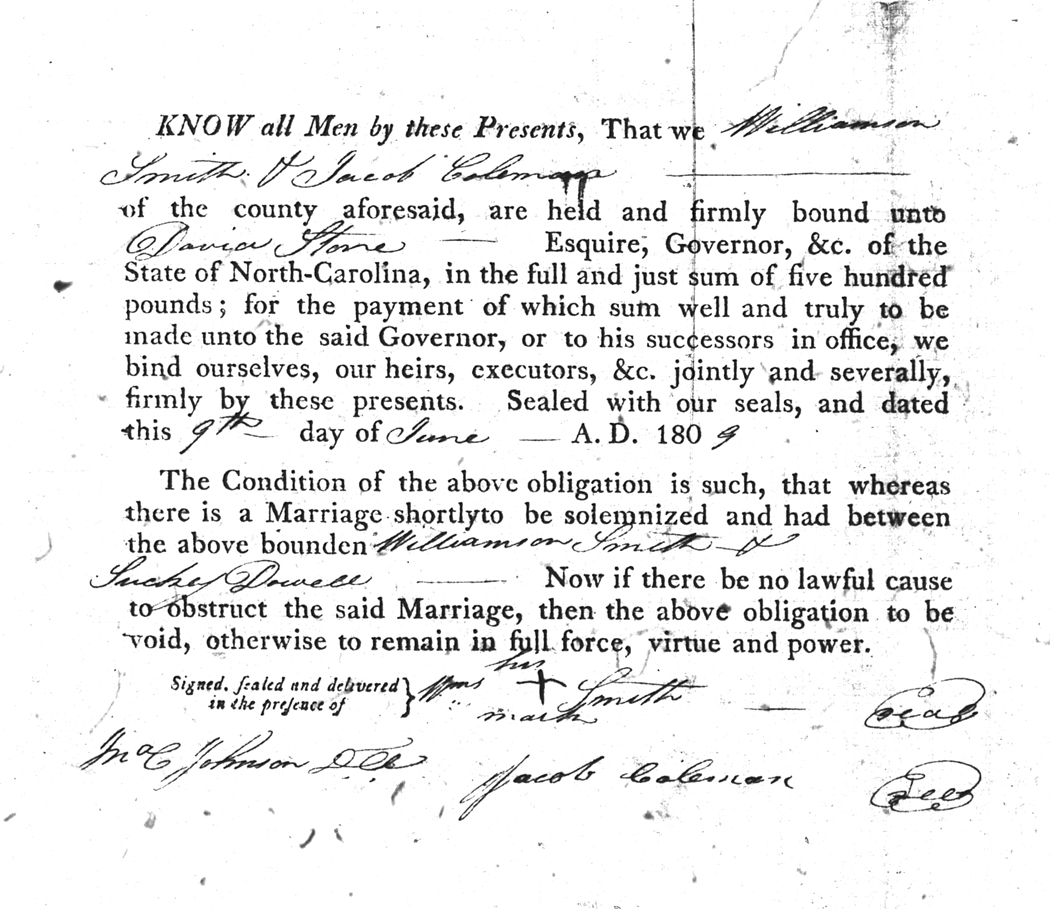 KNOW all Men by these Presents, That we Williamson
Smith & Jacob Coleman
of the county aforesaid, are held and firmly bound unto
David Stone — Esquire, Governor, &c. of the
State of North-Carolina, in the full and just sum of five hundred
pounds; for the payment of which sum well and truly to be
made unto the said Governor, or to his successors in office, we
bind ourselves, our heirs, executors, &c. jointly and severally,
firmly by these presents. Sealed with our seals, and dated
this 9th day of June — A. D. 1809
The Condition of the above obligation is such, that whereas
there is a Marriage shortlyto be solemnized and had between
the above bounden Williamson Smith &
Suckey Dowell — Now if there be no lawful cause
to obstruct the said Marriage, then the above obligation to be
void, otherwise to remain in full force, virtue and power.
his
Signed, sealed and delivered } Wms + Smith — Seal
in the presence of mark
Johnson
Jacob Coleman Seal